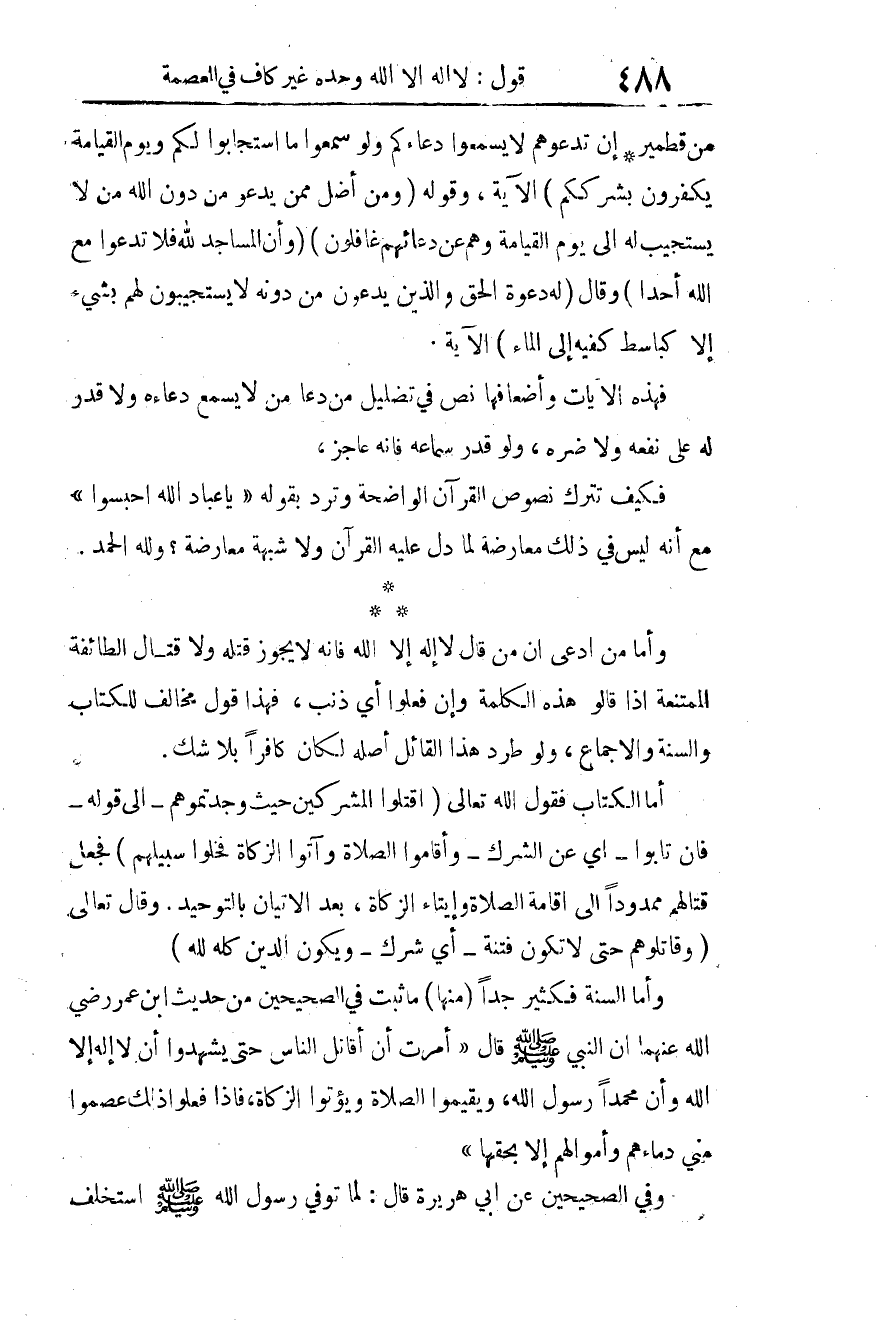 ٤٨٨ قول : لا اله الا الله وحده غير كاف في العصمة
من قطمير * إن تدعوهم لا يسمعوا دعاءكم ولو سمعوا ما استجابوا لكم ويوم القيامة
يكفرون بشرككم ) الآية ، وقوله ( ومن أضل ممن يدعو من دون الله من لا
يستجيب له الى يوم القيامة وهم عن دعائهم غافلون ) ( وأن المساجد لله فلا تدعوا مع
الله أحدا ) وقال ( له دعوة الحق والذين يدعون من دونه لا يستجيبون لهم بشيء
إلا كباسط كفيه إلى الماء ) الآية .
فهذه الآيات وأضعافها نص في تضليل من دعا من لا يسمع دعاءه ولا قدر
له على نفعه ولا ضره ، ولو قدر سماعه فانه عاجز ،
فكيف تترك نصوص القرآن الواضحة وترد بقوله « يا عباد الله احبسوا »
مع أنه ليس في ذلك معارضة لما دل عليه القرآن ولا شبهة معارضة ؟ ولله الحمد .
*
* *
وأما من ادعى ان من قال لا إله إلا الله فانه لا يجوز قتله ولا قتال الطائفة
الممتنعة اذا قالو هذه الكلمة وإن فعلوا أي ذنب ، فهذا قول مخالف للكتاب
والسنة والاجماع ، ولو طرد هذا القائل أصله لكان كافراً بلا شك .
أما الكتاب فقول الله تعالى ( اقتلوا المشركين حيث وجدتموهم - الى قوله -
فان تابوا - اي عن الشرك - وأقاموا الصلاة وآتوا الزكاة فخلوا سبيلهم ) فجعل
قتالهم ممدوداً الى اقامة الصلاة وإيتاء الزكاة ، بعد الاتيان بالتوحيد . وقال تعالى
( وقاتلوهم حتى لا تكون فتنة - أي شرك - ويكون الدين كله لله )
وأما السنة فكثير جداً (منها) ما ثبت في الصحيحين من حديث ابن عمر رضي
الله عنهما ان النبي ﷺ قال « أمرت أن أقاتل الناس حتى يشهدوا أن لا إله إلا
الله وأن محمداً رسول الله، ويقيموا الصلاة ويؤتوا الزكاة، فاذا فعلوا ذلك عصموا
مني دماءهم وأموالهم إلا بحقها »
وفي الصحيحين عن ابي هريرة قال : لما توفي رسول الله ﷺ استخلف